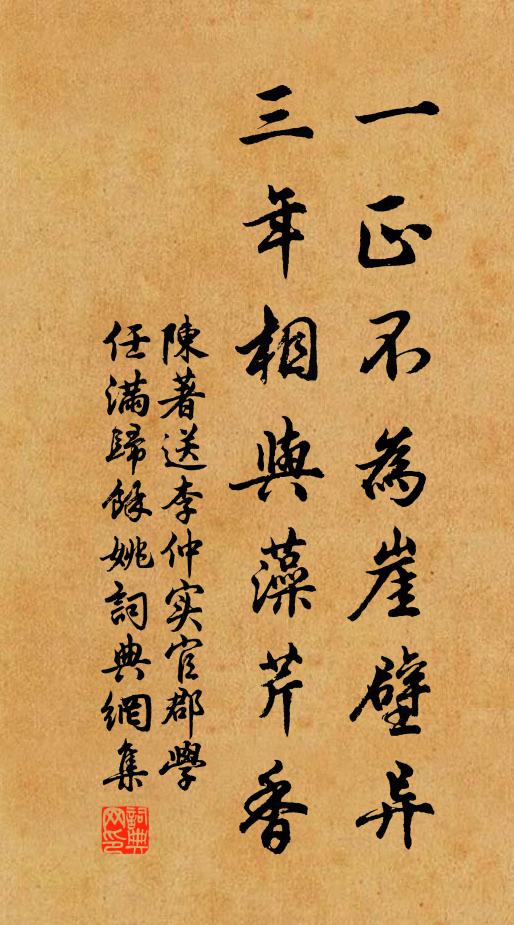 一正不為崖壁异
三年相與藻芹香
陳著送李仲实官郡學
任滿歸餘姚詞典網集
詞典網印